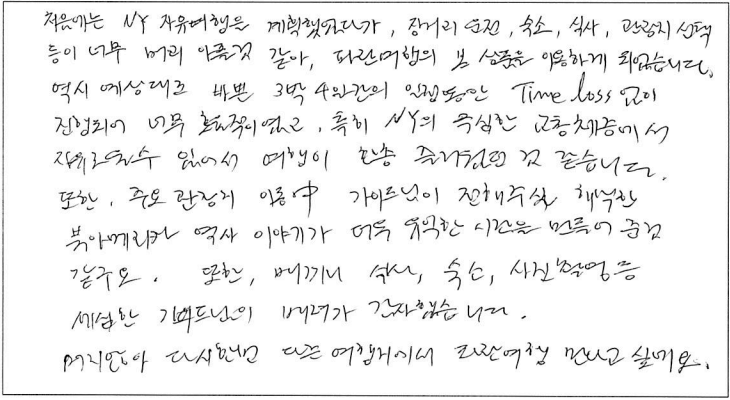 처음에는 NY 자유여행을 계획했었다가, 장거리 운전, 숙소, 식사, 관광지 선택
등이 너무 머리 아플것 같아, 파란여행의 본 상품을 이용하게 되었습니다.
역시 예상대로 바쁜 3박 4일간의 일정동안 Time loss 없이
진행되어 너무 효율적이었고, 특히 NY의 극심한 교통체증에서
자유로울수 있어서 여행이 한층 즐거웠던 것 같습니다.
또한, 주요 관광지 이동中 가이드님이 전해주신 해박한
북아메리카 역사 이야기가 더욱 유익한 시간을 만들어 준것
같구요. 또한, 매끼니 식사, 숙소, 사진촬영 등
세심한 가이드님의 배려가 감사했습니다.
머지않아 다시한번 다른 여행지에서 파란여행 만나고 싶네요.